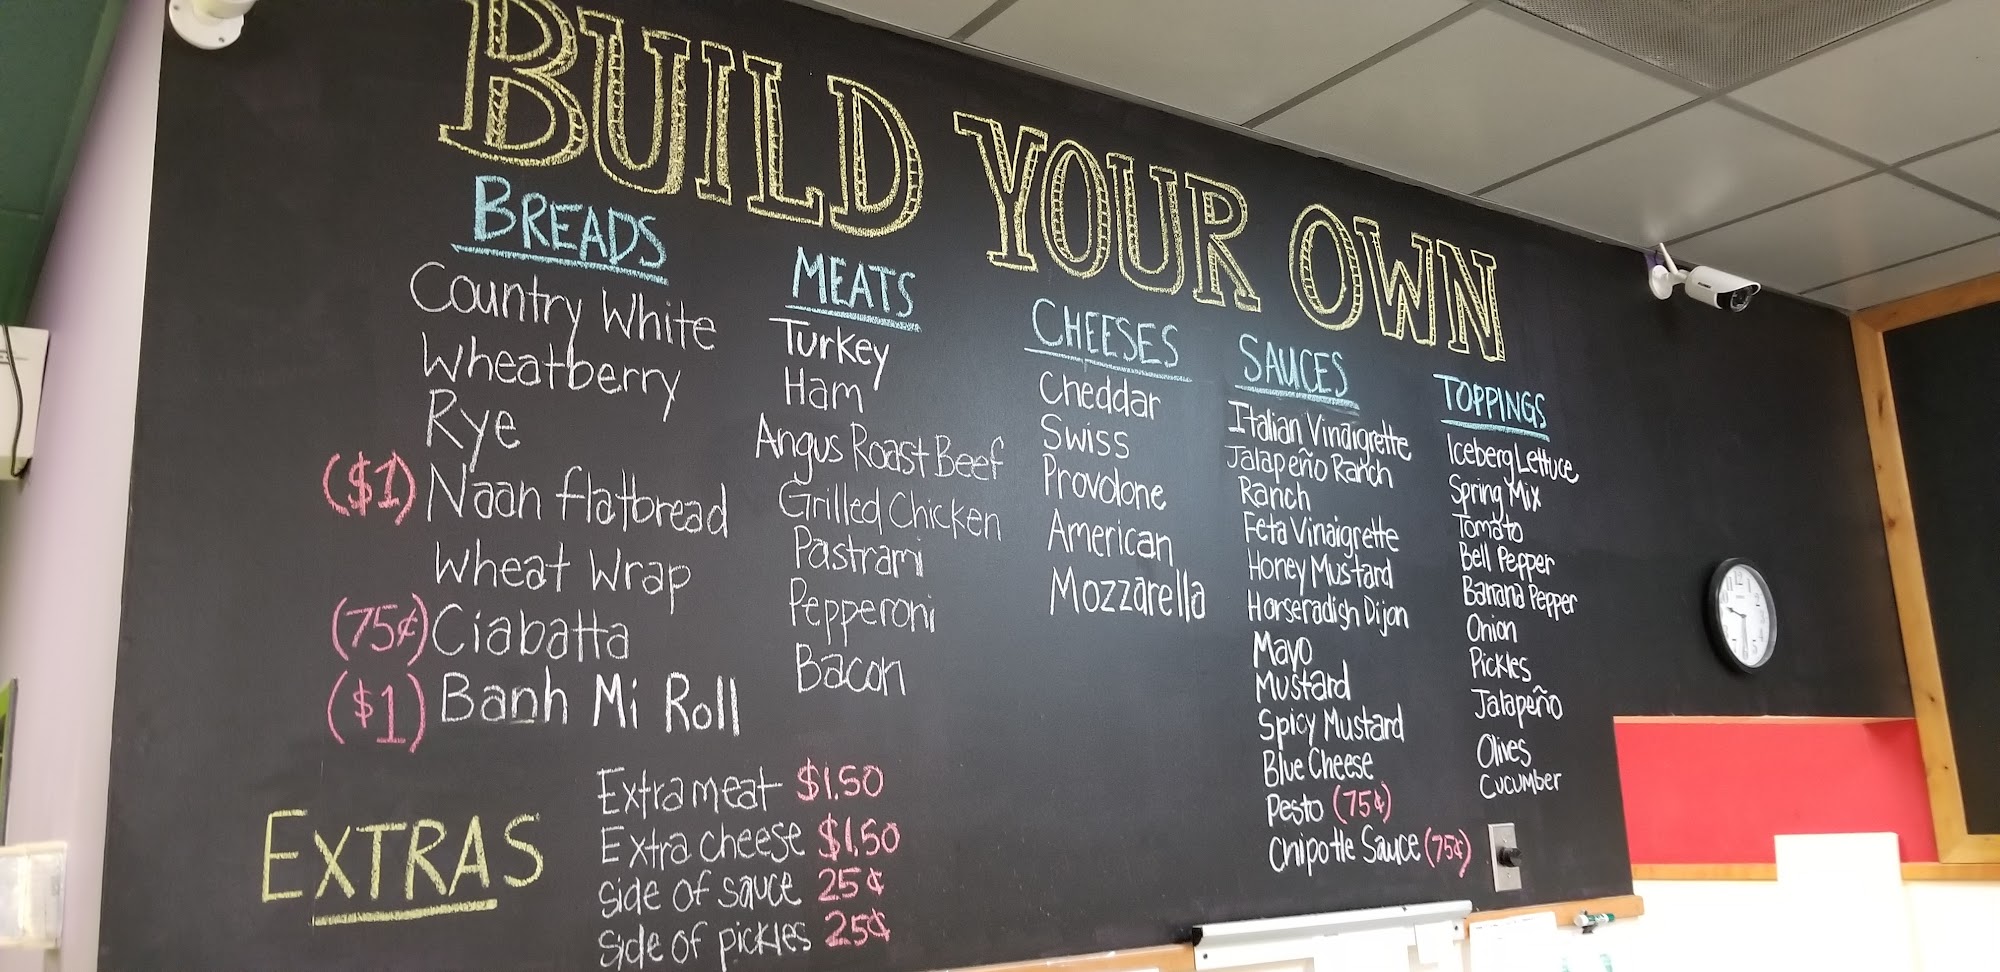 BUILD YOUR OWN
BREADS
Country White
Wheatberry
Rye
($1) Naan flatbread
Wheat Wrap
(75¢) Ciabatta
($1) Banh Mi Roll
MEATS
Turkey
Ham
Angus Roast Beef
Grilled Chicken
Pastrami
Pepperoni
Bacon
CHEESES
Cheddar
Swiss
Provolone
American
Mozzarella
SAUCES
Italian Vinaigrette
Jalapeño Ranch
Ranch
Feta Vinaigrette
Honey Mustard
Horseradish Dijon
Mayo
Mustard
Spicy Mustard
Blue Cheese
Pesto (75¢)
Chipotle Sauce (75¢)
TOPPINGS
Iceberg Lettuce
Spring Mix
Tomato
Bell Pepper
Banana Pepper
Onion
Pickles
Jalapeño
Olives
Cucumber
EXTRAS
Extra meat $1.50
Extra cheese $1.50
side of sauce 25¢
side of pickles 25¢